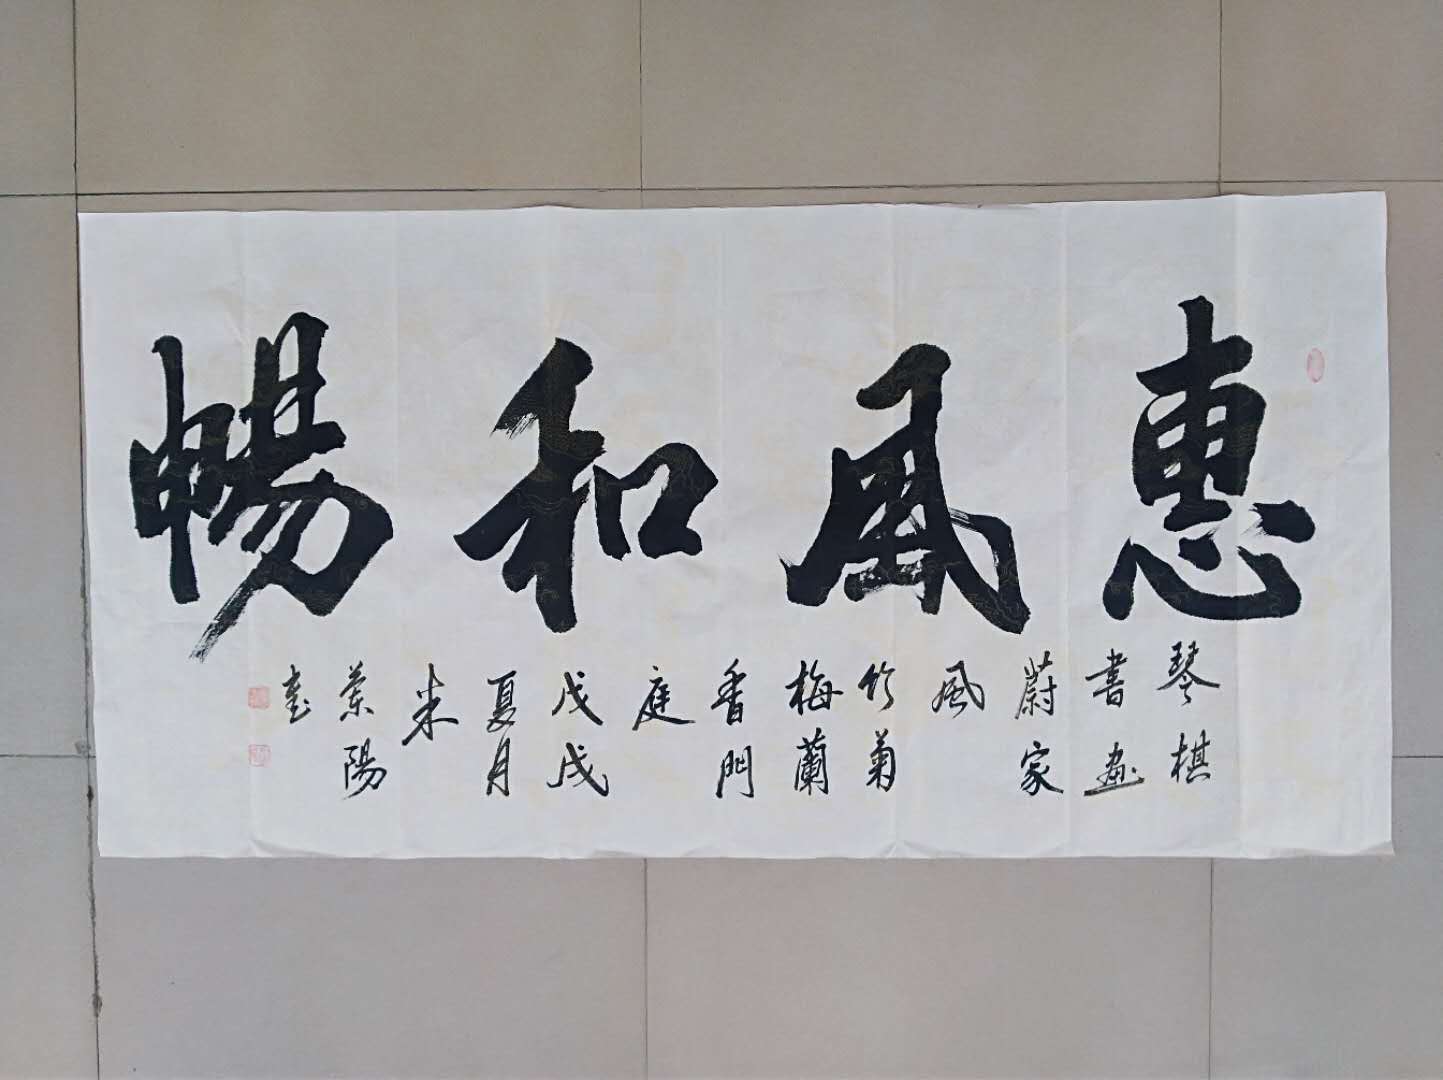 惠風和暢
琴棋
書畫
蔚家
風
竹菊
梅蘭
香門
庭
戊戌
夏月
米
陽
書